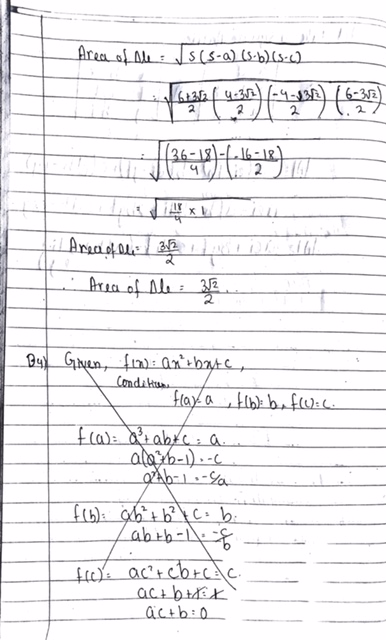 Area of Δle = √s(s-a)(s-b)(s-c)
= √((6+3√2)/2 ((4-3√2)/2) ((-4-3√2)/2) ((6-3√2)/2))
= √(((36-18)/4) - ((16-18)/2))
= √(18/4 × 1)
Area of Δle = 3√2/2
∴ Area of Δle = 3√2/2
Given, f(x) = ax²+bx+c,
condition,
f(a)=a, f(b)=b, f(c)=c.
f(a) = a³+ab+c = a.
a(a²+b-1) = -c
a²+b-1 = -c/a
f(b) = ab²+b²+c = b.
ab+b-1 = -c/b
f(c) = ac²+cb+c = c.
ac+b+1=1
ac+b=0